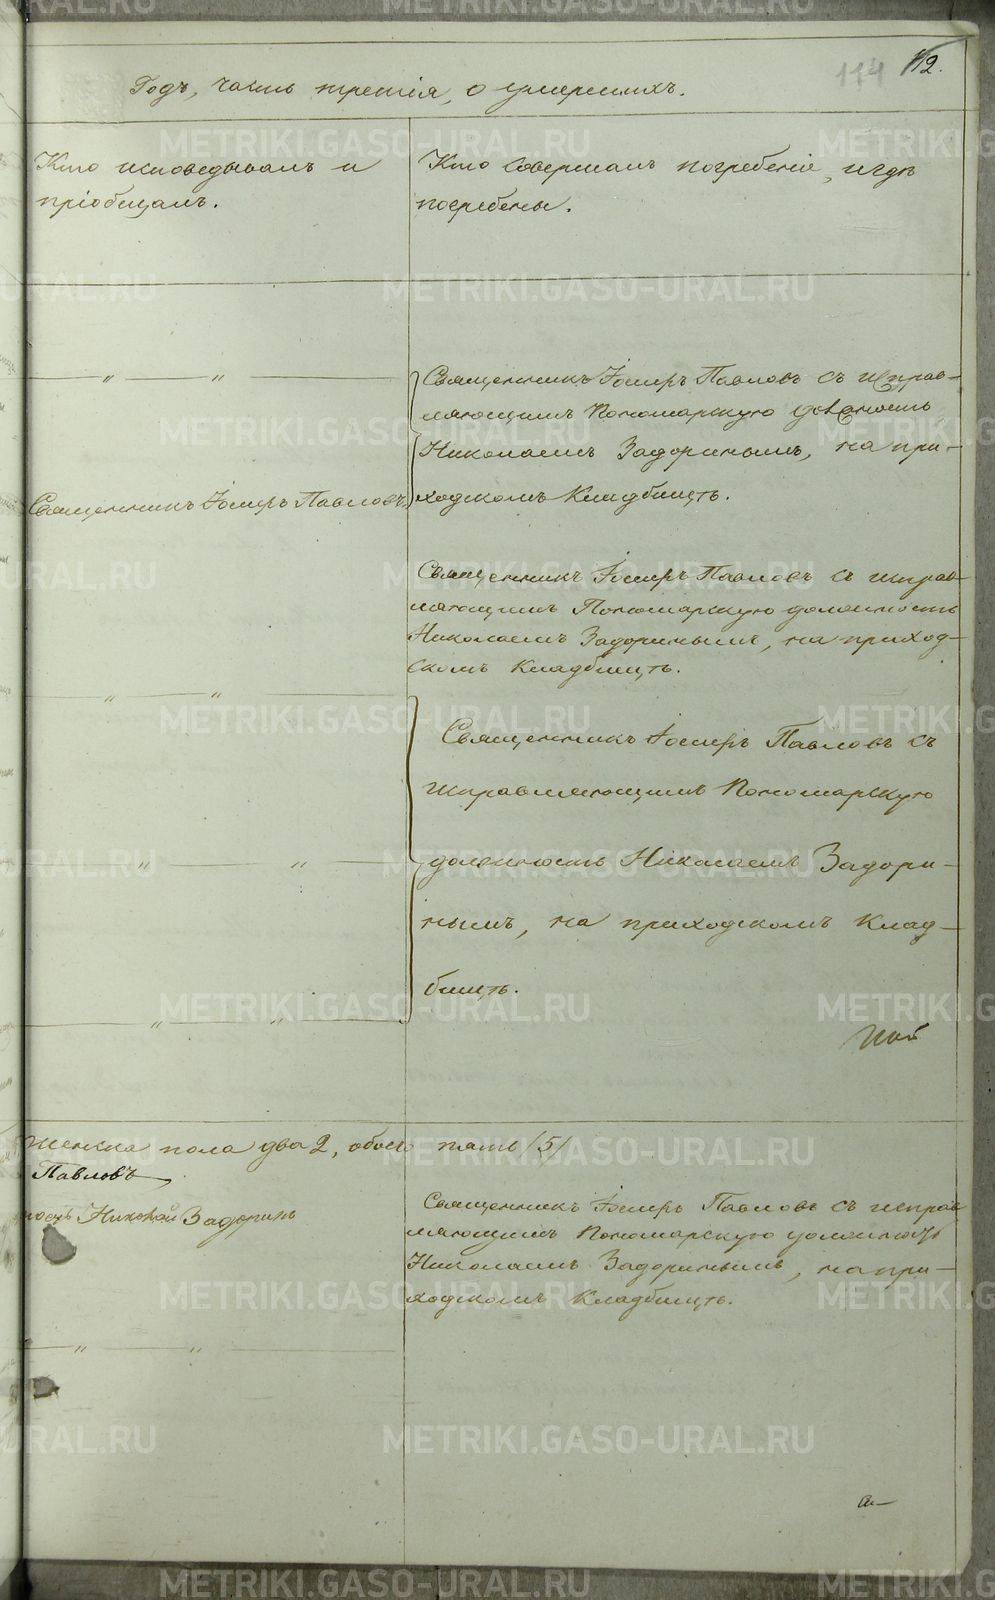 174 112.
Годъ, часть третія, о умершихъ.
Кто исповедывалъ и
пріобщалъ.
Кто совершалъ погребеніе, и гдѣ
погребены.
Священникъ Іосифъ Павловъ съ исправ-
ляющимъ Пономарскую должность
Николаемъ Задоринымъ, на при-
ходскомъ Кладбищѣ.
Священникъ Іосифъ Павловъ
Священникъ Іосифъ Павловъ съ исправ-
ляющимъ Пономарскую должность
Николаемъ Задоринымъ, на приход-
скомъ Кладбищѣ.
Священникъ Іосифъ Павловъ съ
исправляющимъ Пономарскую
должность Николаемъ Задори-
нымъ, на приходскомъ Клад-
бищѣ.
женска пола два 2, обоего пять (5)
Павловъ
ность Николай Задоринъ
Священникъ Іосифъ Павловъ съ исправ-
ляющимъ Пономарскую должность
Николаемъ Задоринымъ, на при-
ходскомъ Кладбищѣ.
METRIKI.GASO-URAL.RU